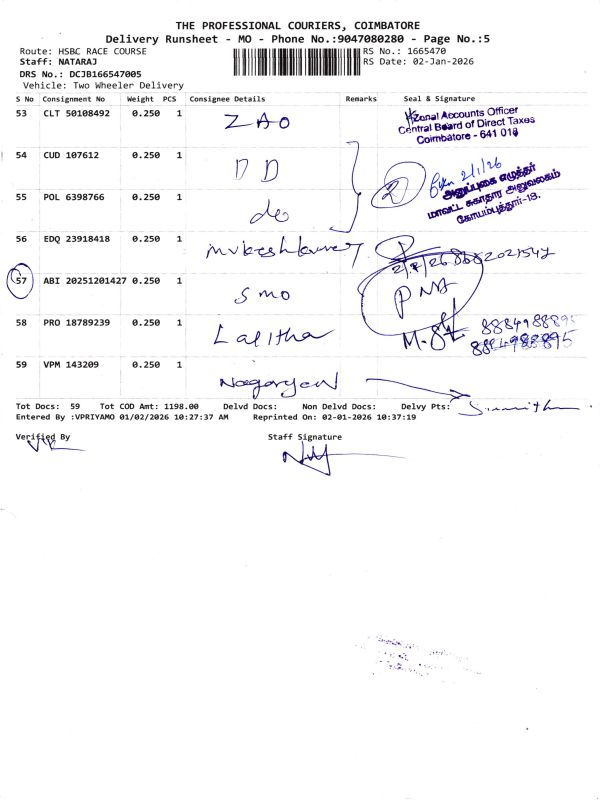 THE PROFESSIONAL COURIERS, COIMBATORE
Delivery Runsheet - MO - Phone No.:9047080280 - Page No.:5
Route: HSBC RACE COURSE RS No.: 1665470
Staff: NATARAJ RS Date: 02-Jan-2026
DRS No.: DCJB166547005
Vehicle: Two Wheeler Delivery
S No Consignment No Weight PCS Consignee Details Remarks Seal & Signature
53 CLT 50108492 0.250 1 ZAO
Zonal Accounts Officer
Central Board of Direct Taxes
Coimbatore - 641 018
54 CUD 107612 0.250 1 DD
2 2/1/26
அலுவலகம்
55 POL 6398766 0.250 1 do
கோயம்புத்தூர்-18.
56 EDQ 23918418 0.250 1 Mukeshkumar
57 ABI 20251201427 0.250 1 SMO
58 PRO 18789239 0.250 1 Lalitha
8884988895
59 VPM 143209 0.250 1 Nagarajan
Tot Docs: 59 Tot COD Amt: 1198.00 Delvd Docs: Non Delvd Docs: Delvy Pts:
Entered By :VPRIYAMO 01/02/2026 10:27:37 AM Reprinted On: 02-01-2026 10:37:19
Verified By Staff Signature